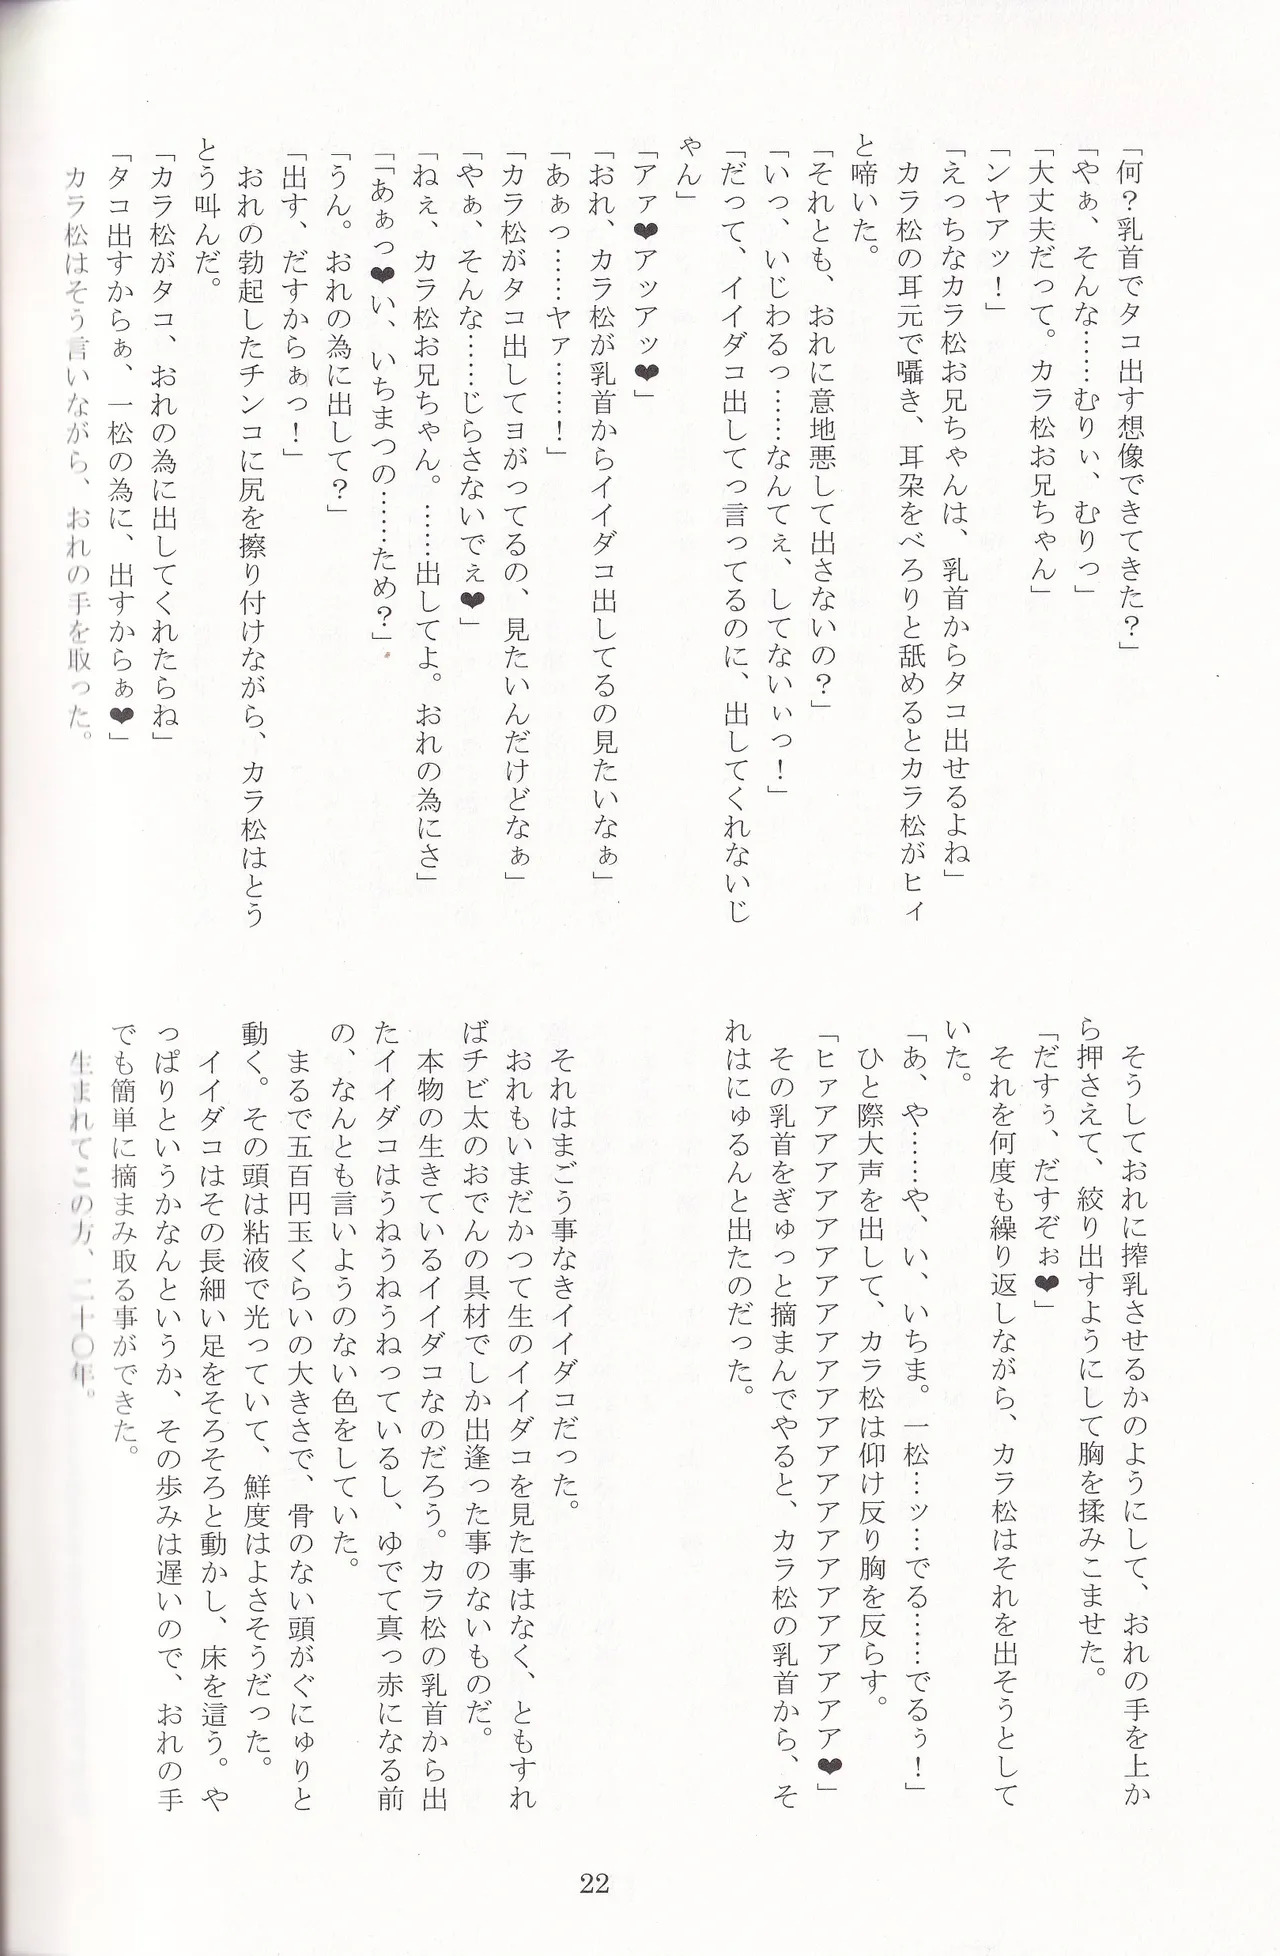 「何？乳首でタコ出す想像できてきた？」
「やぁ、そんな……むりぃ、むりっ」
「大丈夫だって。カラ松お兄ちゃん」
「ンヤアッ！」
「えっちなカラ松お兄ちゃんは、乳首からタコ出せるよね」
カラ松の耳元で囁き、耳朶をべろりと舐めるとカラ松がヒィ
と啼いた。
「それとも、おれに意地悪して出さないの？」
「いっ、いじわるっ……なんてぇ、してないぃっ！」
「だって、イイダコ出してって言ってるのに、出してくれないじ
ゃん」
「アァ❤アッアッ❤」
「おれ、カラ松が乳首からイイダコ出してるの見たいなぁ」
「あぁっ……ヤァ……！」
「カラ松がタコ出してヨがってるの、見たいんだけどなぁ」
「やぁ、そんな……じらさないでぇ❤」
「ねぇ、カラ松お兄ちゃん。……出してよ。おれの為にさ」
「「あぁっ❤い、いちまつの……ため？」
「うん。おれの為に出して？」
「出す、だすからぁっ！」
おれの勃起したチンコに尻を擦り付けながら、カラ松はとう
とう叫んだ。
「カラ松がタコ、おれの為に出してくれたらね」
「タコ出すからぁ、一松の為に、出すからぁ❤」
カラ松はそう言いながら、おれの手を取った。
そうしておれに搾乳させるかのようにして、おれの手を上か
ら押さえて、絞り出すようにして胸を揉みこませた。
「だすぅ、だすぞぉ❤」
それを何度も繰り返しながら、カラ松はそれを出そうとして
いた。
「あ、や……や、い、いちま。一松…ッ…でる……でるぅ！」
ひと際大声を出して、カラ松は仰け反り胸を反らす。
「ヒァアアアアアアアアアアアアアアアアアアアアアア❤」
その乳首をぎゅっと摘まんでやると、カラ松の乳首から、そ
れはにゅるんと出たのだった。
それはまごう事なきイイダコだった。
おれもいまだかつて生のイイダコを見た事はなく、ともすれ
ばチビ太のおでんの具材でしか出逢った事のないものだ。
本物の生きているイイダコなのだろう。カラ松の乳首から出
たイイダコはうねうねうねっているし、ゆでて真っ赤になる前
の、なんとも言いようのない色をしていた。
まるで五百円玉くらいの大きさで、骨のない頭がぐにゅりと
動く。その頭は粘液で光っていて、鮮度はよさそうだった。
イイダコはその長細い足をそろそろと動かし、床を這う。や
っぱりというかなんというか、その歩みは遅いので、おれの手
でも簡単に摘まみ取る事ができた。
生まれてこの方、二十〇年。
22